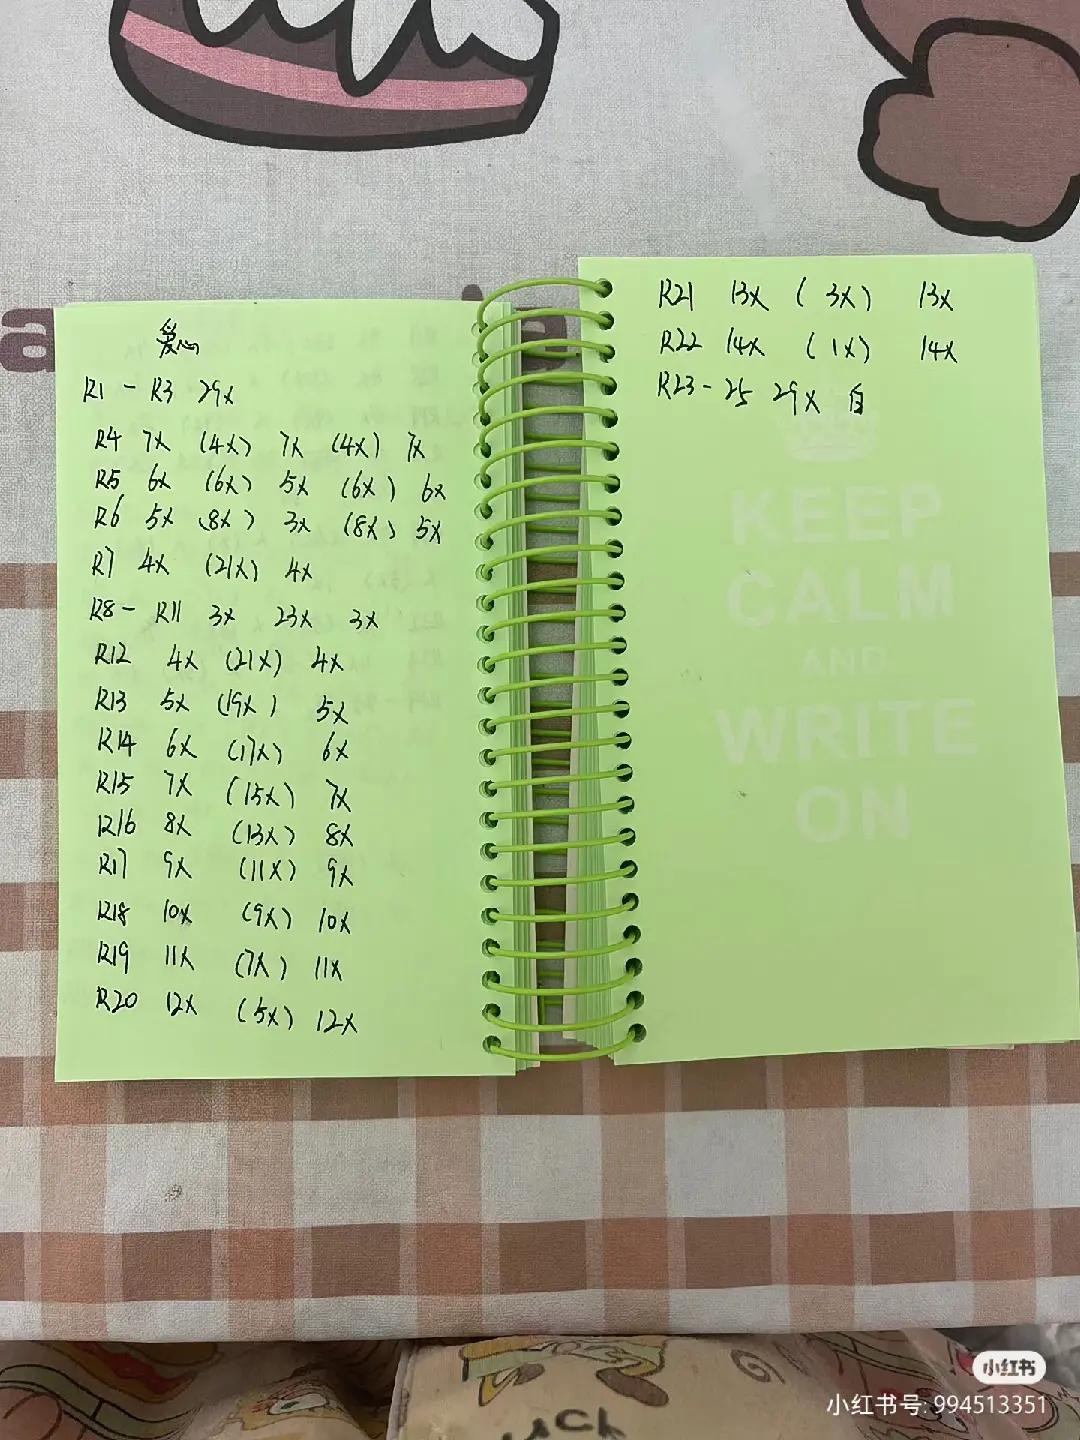 爱心
R1 - R3 29x
R4 7x (4x) 7x (4x) 7x
R5 6x (6x) 5x (6x) 6x
R6 5x (8x) 3x (8x) 5x
R7 4x (21x) 4x
R8 - R11 3x 23x 3x
R12 4x (21x) 4x
R13 5x (19x) 5x
R14 6x (17x) 6x
R15 7x (15x) 7x
R16 8x (13x) 8x
R17 9x (11x) 9x
R18 10x (9x) 10x
R19 11x (7x) 11x
R20 12x (5x) 12x
R21 13x (3x) 13x
R22 14x (1x) 14x
R23 - 25 29x 白
KEEP
CALM
AND
WRITE
ON
小红书
小红书号: 994513351